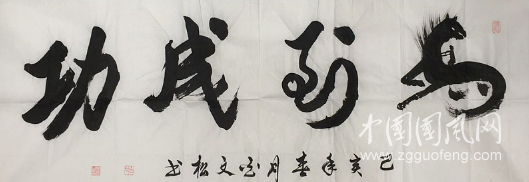 马到成功
己亥年春月文松书
中国国风网
www.zgguofeng.com